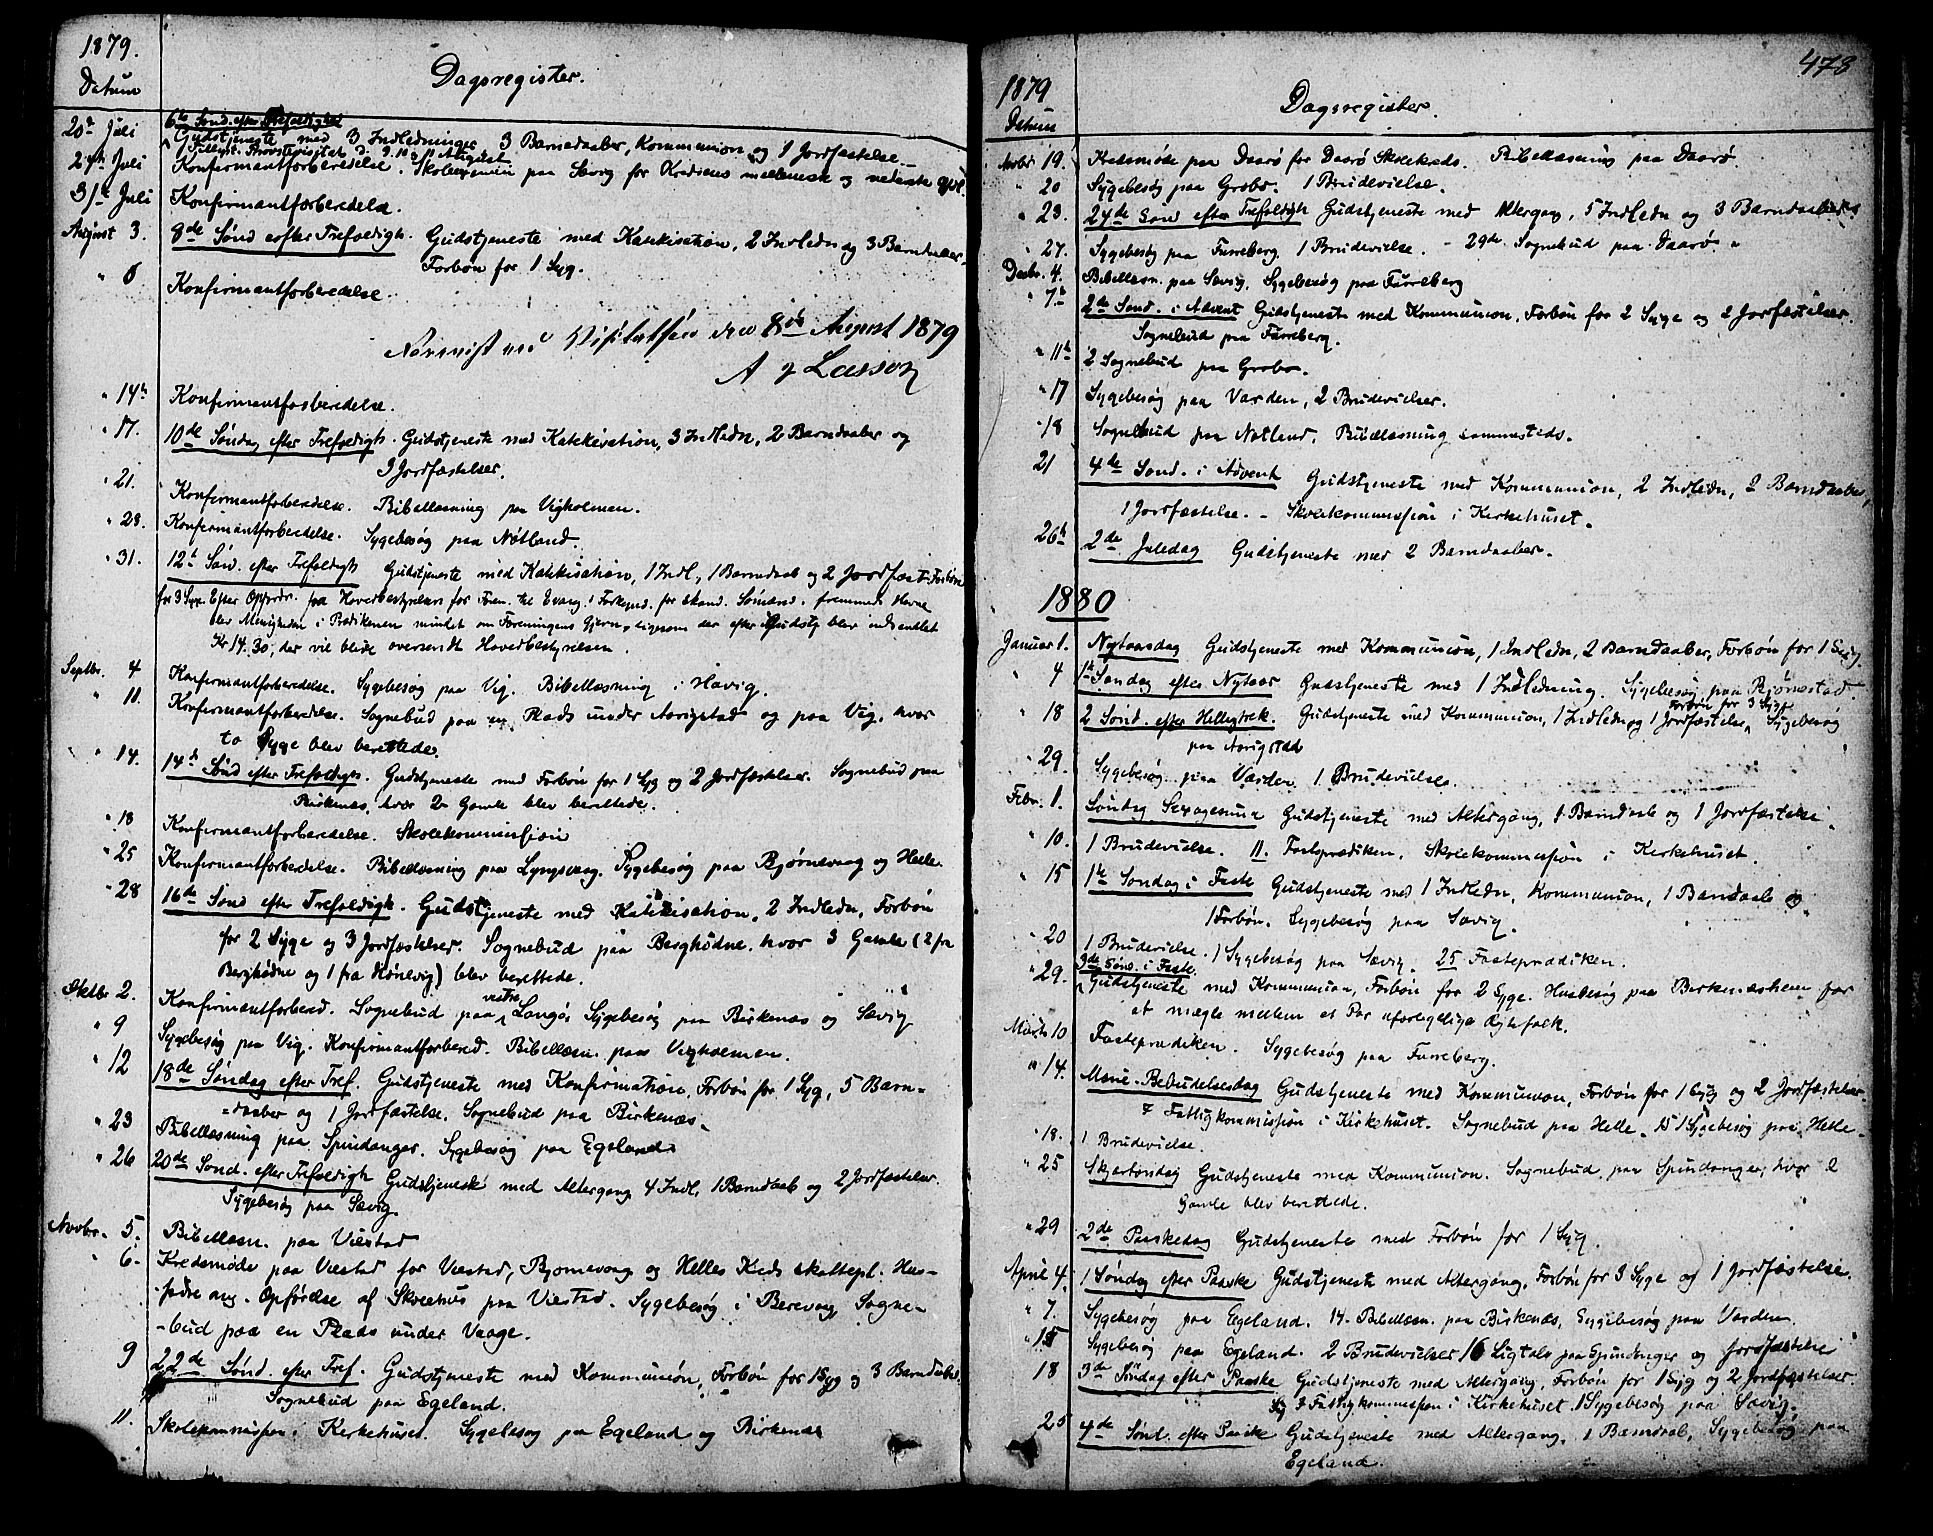 1879.
Datum
Dagsregister.
20de Juli 6te Sønd. efter Trefoldigh.
Gudstjeneste med 3 Indledninger 3 Barnedaaber, Kommunion og 1 Jordfæstelse.
Juli Konfirmantforberedelse. Skoleexamen paa Sævig for Kredsene mellemste og nederste
31te Juli Konfirmantforberedelse.
August 3. 8de Sønd efter Trefoldigh. Gudstjeneste med Katekisation, 2 Indledn og 3 Barnedaaber.
Forbøn for 1 Syg.
" 6 Konfirmantforberedelse.
Visitatsen den 8de August 1879
A J Lasson
" 14de Konfirmantforberedelse.
" 17. 10de Søndag efter Trefoldigh. Gudstjeneste med Katekisation, 3 Indledn, 2 Barndaaber og
3 Jordfæstelser.
" 21. Konfirmantforberedelse. Bibellæsning paa Vigholmen.
" 28. Konfirmantforberedelse. Sygebesøg paa Nøtland.
" 31. 12te Sønd. efter Trefoldigh Gudstjeneste med Katekisation, 1 Indl, 1 Barndaab og 2 Jordfæst. Forbøn
for 3 Syge. Efter Opfordr. fra Hovedbestyrelsen for Foren. til Evang. Forkynd. for skand. Sømænd i fremmede Havne
blev Menigheden i Prædikenen mindet om Foreningens Gjerning, ligesom der efter Gudstj blev indsamlet
Kr 14.30, der vil blive oversendt Hovedbestyrelsen.
Septbr. 4 Konfirmantforberedelse. Sygebesøg paa Vig. Bibellæsning i Havig.
" 11. Konfirmantforberedelse. Sognebud paa en Plads under Aarigstad og paa Vig, hvor
to Syge blev berettede.
" 14. 14de Sønd efter Trefoldigh. Gudstjeneste med Forbøn for 1 Syg og 2 Jordfæstelser. Sognebud paa
Birkenæs, hvor 2 Gamle blev berettede.
" 18 Konfirmantforberedelse. Skolekommission
" 25 Konfirmantforberedelse. Bibellæsning paa Lyngsvaag. Sygebesøg paa Bjørnevaag og Helle.
" 28 16de Sønd efter Trefoldigh. Gudstjeneste med Katekisation, 2 Indledn, Forbøn
for 2 Syge og 3 Jordfæstelser. Sognebud paa Berghødne, hvor 3 Gamle (2 fra
Berghødne og 1 fra ) blev berettede.
Oktbr 2. Konfirmantforbered. Sognebud paa vestre Langø, Sygebesøg paa Birkenæs og Sævig
" 9 Sygebesøg paa Vig. Konfirmantforbered. Bibellæsn. paa Vigholmen.
" 12 18de Søndag efter Tref. Gudstjeneste med Konfirmation, Forbøn for 1 Syg, 5 Barn-
=daaber og 1 Jordfæstelse. Sognebud paa Birkenæs.
" 23 Bibellæsning paa Spindanger. Sygebesøg paa Egeland.
" 26 20de Sønd. efter Trefoldigh Gudstjeneste med Altergang, 4 Indl, 1 Barndaab og 2 Jordfæstelser.
Sygebesøg paa Sævig.
Novbr. 5. Bibellæsn. paa Viestad
" 6. Kredsmøde paa Viestad for Viestad, Bjørnevaag og Helles Kreds skattepl. Hus-
-fædre ang. Opførelse af Skolehus paa Viestad. Sygebesøg i Berevaag, Sogne-
-bud paa en Plads under Vaage.
9 22de Sønd. efter Tref. Gudstjeneste med Kommunion, Forbøn for 1 Syg og 3 Barndaaber.
Sognebud paa Egeland.
11. Skolekommission i Kirkehuset. Sygebesøg paa Egeland og Birkenæs
478
1879
Datum
Dagsregister.
Novbr 19. Kredsmøde paa Daarø for Daarø Skolekreds. Bibellæsning paa Daarø.
" 20 Sygebesøg paa Grobo. 1 Brudevielse.
" 23. 24de Sønd efter Trefoldigh Gudstjeneste med Altergang, 5 Indledn og 3 Barndaaber.
" 27. Sygebesøg paa Furreberg. 1 Brudevielse. - 29de Sognebud paa Daarø.
Decbr. 4. Bibellæsn. paa Sævig, Sygebesøg paa Furreberg
" 7de 2de Sønd. i Advent Gudstjeneste med Kommunion, Forbøn for 2 Syge og 2 Jordfæstelser
Sognebud paa Furreberg.
" 11te 2 Sognebud paa Grobo.
" 17 Sygebesøg paa Varden, 2 Brudevielser.
" 18 Sognebud paa Nøtland. Bibellæsning sammesteds.
21 4de Sønd. i Advent Gudstjeneste med Kommunion, 2 Indledn, 2 Barndaaber,
1 Jordfæstelse. - Skolekommission i Kirkehuset.
26de 2de Juledag Gudstjeneste med 2 Barndaaber.
1880
Januar 1. Nytaarsdag Gudstjeneste med Kommunion, 1 Indledn, 2 Barndaaber, Forbøn for 1 Syg.
" 4 1te Søndag efter Nytaar Gudstjeneste med 1 Indledning. Sygebesøg paa Bjørnestad.
Forbøn for 3 Syge
" 18 2 Sønd. efter Helligtrek. Gudstjeneste med Kommunion, 1 Indledn og 1 Jordfæstelse, Sygebesøg
paa Aarigstad
" 29. Sygebesøg paa Varden. 1 Brudevielse.
Febr. 1. Søndag Sexagesima Gudstjeneste med Altergang, 1 Barndaab og 1 Jordfæstelse.
" 10. 1 Brudevielse. 11. Fasteprædiken. Skolekommission i Kirkehuset.
" 15 1te Søndag i Faste Gudstjeneste med 1 Indledn, Kommunion, 1 Barndaab og
1 Forbøn. Sygebesøg paa Sævig.
" 20 1 Brudevielse. 1 Sygebesøg paa Sævig. 25 Fasteprædiken.
3de Sønd. i Faste
" 29. Gudstjeneste med Kommunion, Forbøn for 2 Syge. Husbesøg paa Birkenæshei for
at mægle mellem et Par uforligelige Ægtefolk.
Marts 10 Fasteprædiken. Sygebesøg paa Furreberg.
" 14. Mariæ Bebudelsesdag Gudstjeneste med Kommunion, Forbøn for 1 Syg og 2 Jordfæstelser.
Fattigkommission i Kirkehuset. Sognebud paa Helle. 15 1 Sygebesøg paa Helle.
" 18. 1 Brudevielse.
" 25 Skjærtorsdag Gudstjeneste med Kommunion. Sognebud paa Spindanger, hvor 2
Gamle blev berettede.
" 29 2de Paaskedag Gudstjeneste med Forbøn for 1 Syg.
April 4. 1 Søndag efter Paaske Gudstjeneste med Altergang, Forbøn for 3 Syge og 1 Jordfæstelse.
" 7. Sygebesøg paa Egeland. 14. Bibellæsn. paa Birkenæs, Sygebesøg paa Varden.
" 15 Sygebesøg paa Egeland. 2 Brudevielser 16 Ligtale paa Spindanger og Jordfæstelse
18 3de Søndag efter Paaske Gudstjeneste med Altergang, Forbøn for 1 Syg og 2 Jordfæstelser.
Fattigkommission i Kirkehuset, 1 Sygebesøg paa Sævig.
" 25 4de Sønd. efter Paaske Gudstjeneste med Altergang, 1 Barndaab, Sygebesøg paa
Egeland.